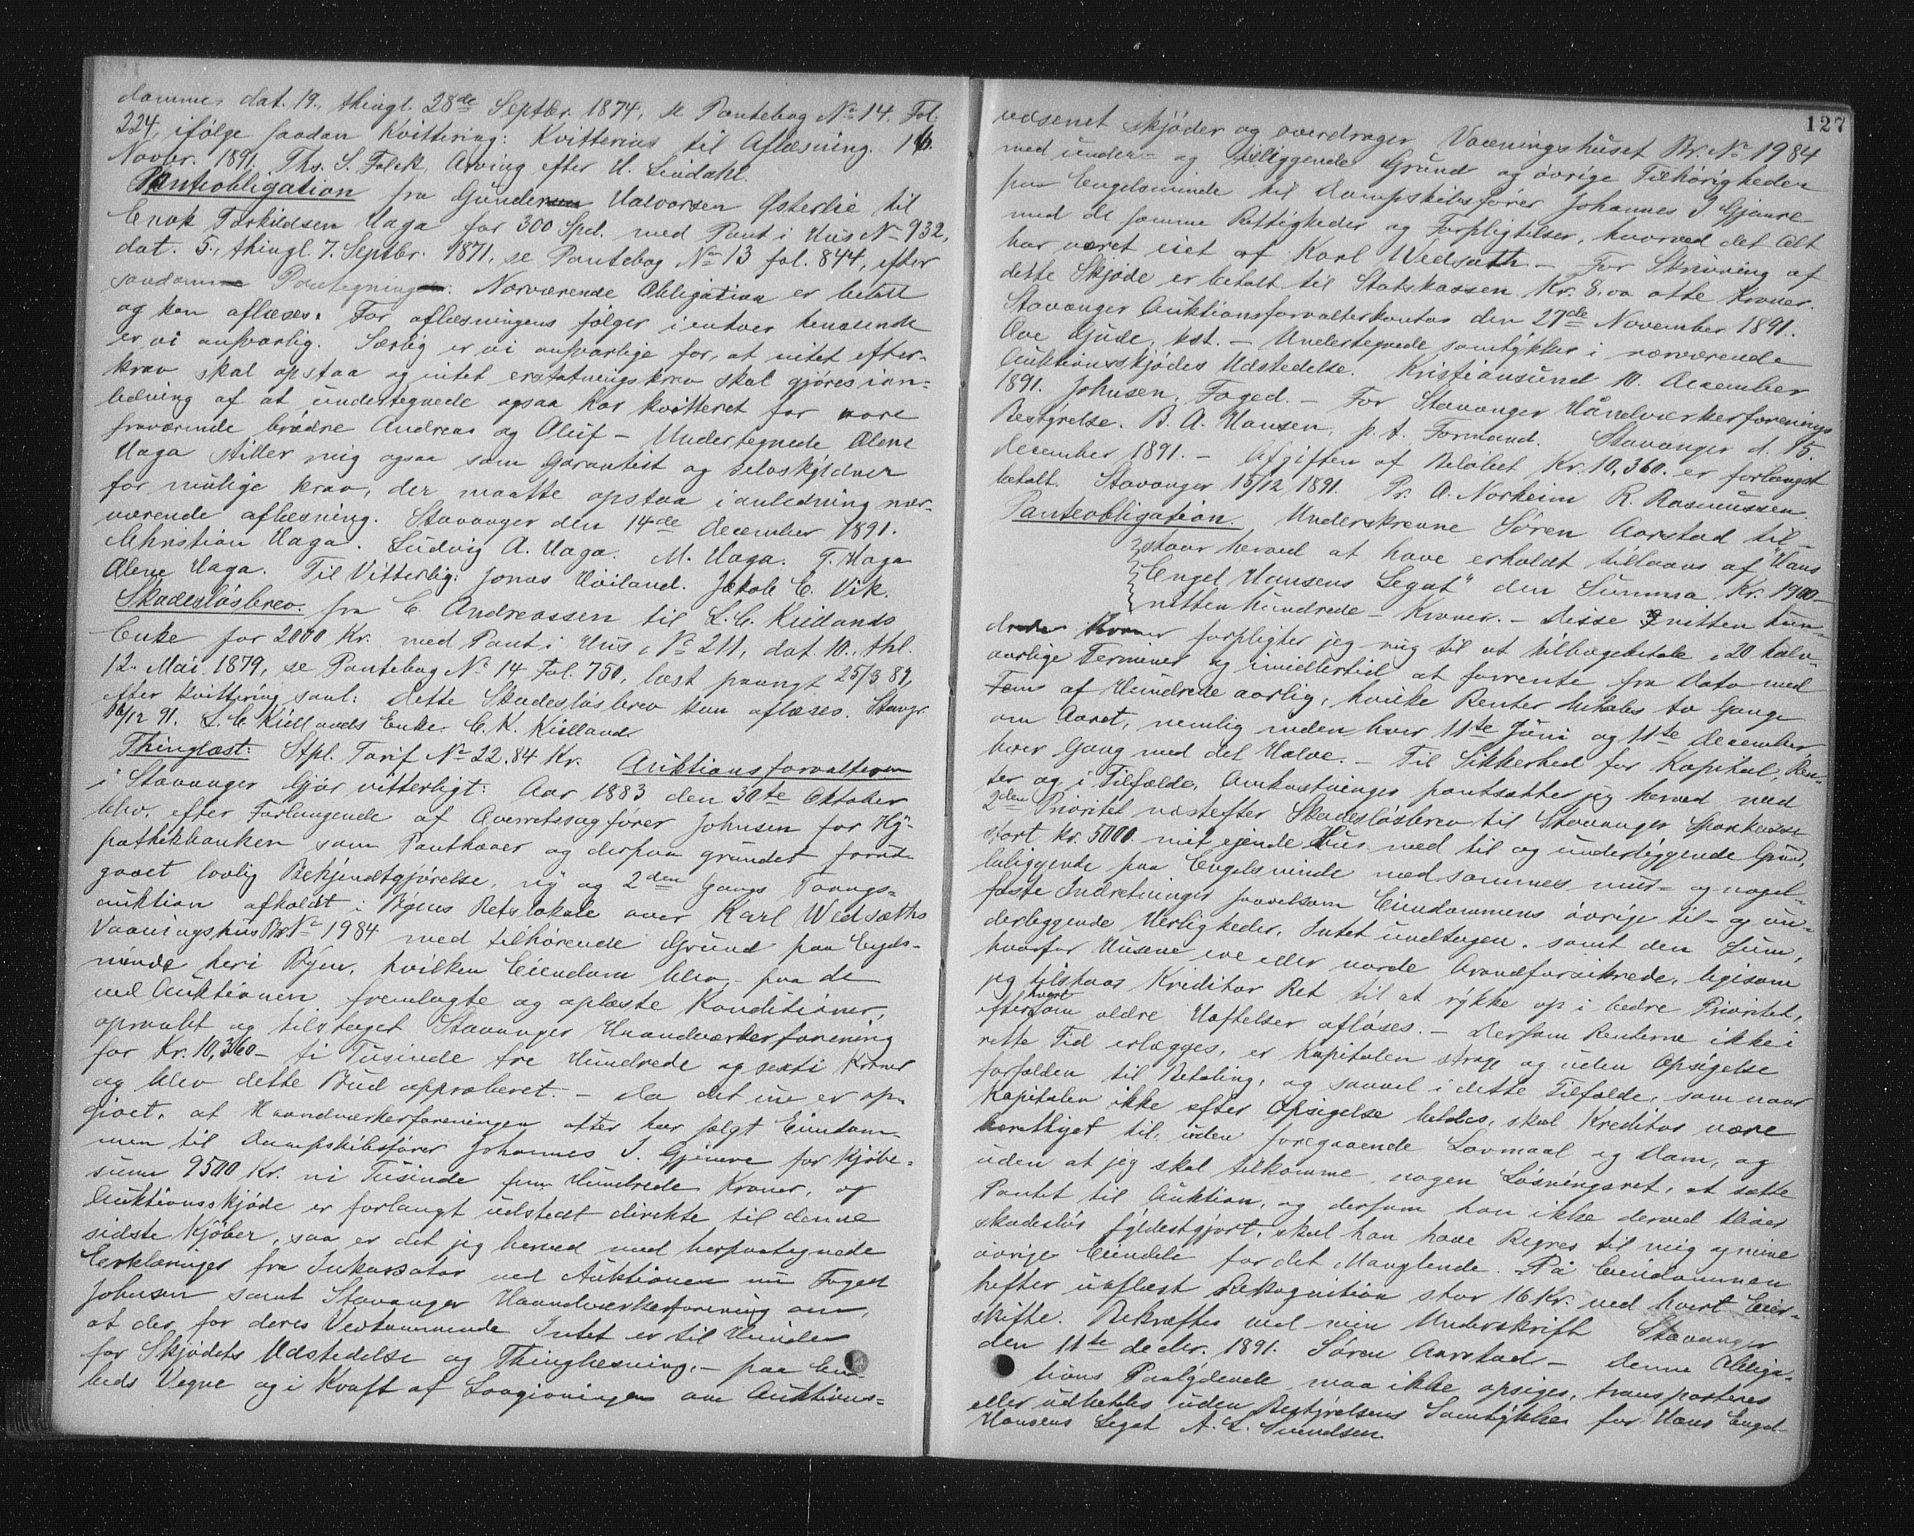 dammes dat. 19., thingl. 28de Septbr. 1874, se Pantebog No 14. Fol.
224, ifølge saadan Kvittering: Kvitteres til Aflæsning. 16.
Novbr. 1891. Ths. S. Falck, Arving efter H. Lindahl.
Panteobligation fra Gunder Halvorsen Østerlie til
Enok Torkildsen Haga for 300 Spd. med Pant i Hus No 932,
dat. 5., thingl. 7. Septbr. 1871, se Pantebog No 13 fol. 844, efter
saadan Paategning. Nærværende Obligation er betalt
og kan aflæses. For aflæsningens følger i enhver henseende
er vi ansvarlig. Særlig er vi ansvarlige for, at intet efter-
krav skal opstaa og intet erstatningskrav skal gjøres i an-
ledning af at undertegnede ogsaa har kvitteret for vore
fraværende brødre Andreas og Oluf – Undertegnede Olene
Haga stiller mig ogsaa som Garantist og selvskyldner
for mulige krav, der maatte opstaa i anledning nær-
værende aflæsning. Stavanger den 14de December 1891.
Christian Haga. Ludvig A. Haga. M. Haga. T. Haga
Olene Haga. Til Vitterlig: Jonas Høiland. Jakob E. Vik.
Skadesløsbrev. fra C. Andreassen til L. C. Kiellands
Enke for 2000 Kr. med Pant i Hus No 211, dat. 10., thl.
12. Mai 1879, se Pantebog No 14 Fol. 750, læst paangt 25/3 82,
efter Kvittering saal: Dette Skadesløsbrev kan aflæses. Stavgr.
16/12 91. L. C. Kiellands Enke. C. K. Kielland
Thinglæst: Stpl. Tarif No 22. 84 Kr. Auktionsforvalteren
i Stavanger Gjør vitterligt: Aar 1883 den 30te Oktober
blev, efter Forlangende af Overretssagfører Johnsen for Hy-
pothekbanken som Panthaver og derpaa grundet forud-
gaaet lovlig Bekjendtgjørelse, ny og 2den Gangs Tvangs-
auktion afholdt i Byens Retslokale over Karl Wedsæths
Vaaningshus Br. No 1984 med tilhørende Grund paa Engels-
minde heri Byen, hvilken Eiendom blev paa de
ved Auktionen fremlagte og oplæste Konditioner,
opraabt og tilslaget Stavanger Haandværkerforening
for Kr. 10,360 – ti Tusinde tre Hundrede og sexti Kroner
og blev dette Bud approberet. – Da det nu er op-
givet, at Haandværkerforeningen atter har solgt Eiendom-
men til Dampskibsfører Johannes J. Gjemre for Kjøbe-
sum 9500 Kr. ni Tusinde fem Hundrede Kroner, og
Auktionsskjøde er forlangt udstedt direkte til denne
sidste Kjøber, saa er det jeg herved med herpaategnede
Erklæringer fra Inkassator ved Auktionen nu Foged
Johnsen samt Stavanger Haandværkerforening om,
at der, for deres Vedkommende Intet er til Hinder
for Skjødets Udstedelse og Thinglæsning, – paa Em-
beds Vegne og i Kraft af Lovgivningen om Auktions-
127
væsenet skjøder og overdrager Vaaningshuset Br. No 1984
med under- og tilliggende Grund og øvrige Tilhørigheder
paa Engelsminde til Dampskibsfører Johannes J Gjemre
med de samme Rettigheder og Forpligtelser, hvorved det Alt
har været eiet af Karl Wedsæth. – For Skrivning af
dette Skjøde er betalt til Statskassen Kr. 8,00 otte Kroner.
Stavanger Auktionsforvalterkontor den 27de November 1891.
Ove Gjude, kst. – Undertegnede samtykker i nærværende
Auktionsskjødes Udstedelse. Kristiansund 10. December
1891. Johnsen, Foged. – For Stavanger Håndværkerforenings
Bestyrelse. B. A. Hansen, p. t. Formand. Stavanger d. 15.
December 1891. – Afgiften af Beløbet Kr. 10,360. er forlængst
betalt. Stavanger 15/12 1891. Pr. A. Norheim R. Rasmussen.
Panteobligation. Underskrevne Søren Aarstad til-
staar herved at have erholdt tillaans af "Hans
Engel Hansens Legat" den Summa Kr. 1900 –
nitten hundrede – Kroner. – Disse nitten hun-
drede Kroner forpligter jeg mig til at tilbagebetale i 20 halv-
aarlige Terminer og imidlertid at forrente fra Dato med
Fem af Hundrede aarlig, hvilke Renter betales to Gange
om Aaret, nemlig inden hver 11te Juni og 11te December
hver Gang med det Halve. – Til Sikkerhed for Kapital, Ren-
ter og i Tilfælde, Omkostninger pantsætter jeg herved med
2den Prioritet næstefter Skadesløsbrev til Stavanger Sparekasse
stort kr. 5000 mit eiende Hus med til og underliggende Grund,
beliggende paa Engelsminde med sammes mur- og nagel-
faste Indretninger saavelsom Eiendommens øvrige til- og un-
derliggende Herligheder, Intet undtagen, samt den Sum,
hvorfor Husene ere eller vorde Brandforsikrede, ligesom
jeg tilstaar Kreditor Ret til at rykke op i bedre Prioritet,
efterhvert som ældre Heftelser afløses. – Dersom Renterne ikke i
rette Tid erlægges, er Kapitalen strax og uden Opsigelse
forfalden til Betaling, og saavel i dette Tilfælde, som naar
Kapitalen ikke efter Opsigelse betales, skal Kreditor være
berettiget til, uden foregaaende Lovmaal og Dom, og
uden at jeg skal tilkomme nogen Løsningsret, at sætte
Pantet til Auktion, og dersom han ikke derved bliver
skadesløs fyldestgjort, skal han have Regres til mig og mine
øvrige Eiendele for det Manglende. På Eiendommen
hefter uaflæst Rekognition stor 16 Kr. ved hvert Eier-
skifte. Bekræftes med min Underskrift Stavanger
den 11te decbr. 1891. Søren Aarstad – Denne Obliga-
tions Paalydende maa ikke opsiges, transporteres
eller udbetales uden Bestyrelsens Samtykke for Hans Engel
Hansens Legat A. L. Svendsen.